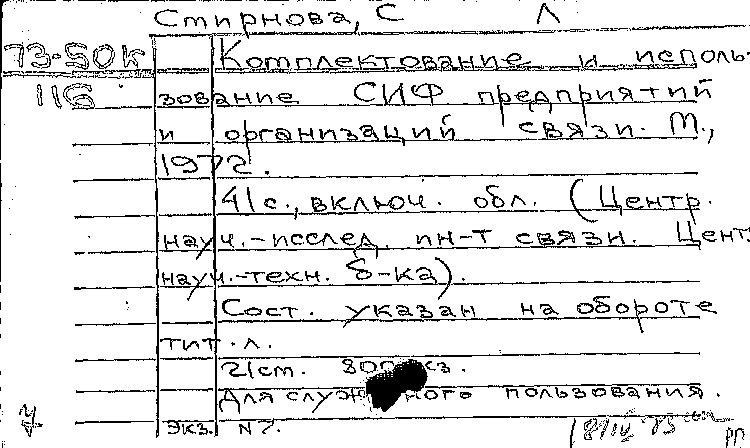 Смирнова, С Л
73-50к
116
Комплектование и исполь-
зование СИФ предприятий
и организаций связи. М.,
1972.
41 с., включ. обл. (Центр.
науч.-исслед. ин-т связи. Цент.
науч.-техн. б-ка).
Сост. указан на обороте
тит. л.
21 см. 800
Для пользования.
экз. N 7.